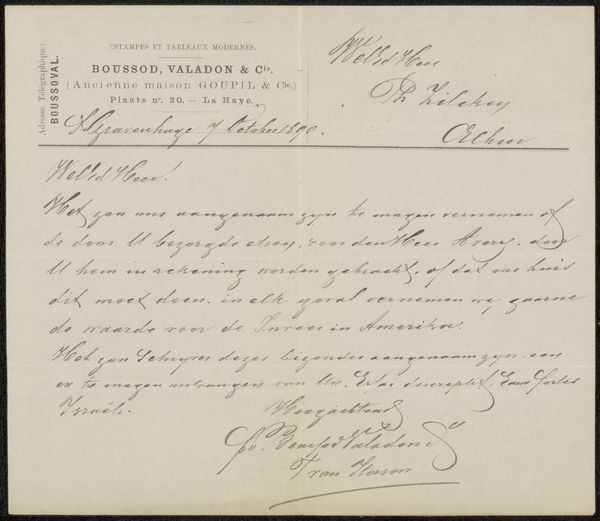 Adresse Télégraphique:
BOUSSOVAL.
ESTAMPES ET TABLEAUX MODERNES.
BOUSSOD, VALADON & Cie.
(Ancienne maison GOUPIL & Cie.)
Plaats no. 20. — La Haye.
S'Gravenhage 7 October 1890.
WelEd Heer
Ph Zilcken
Alhier
WelEd Heer!
Het zou ons aangenaam zijn te mogen vernemen of
de door U bezorgde voor den Heer Avery, door
U hem in rekening worden gebracht, of dat ons huis
dit moet doen. in elk geval vernemen wij gaarne
de waarde voor de Invoer in Amerika.
Het zou Schrijver dezes bizonder aangenaam zijn een
ex te mogen ontvangen van Uw
Israëls.
Hoogachtend
Boussod Valadon